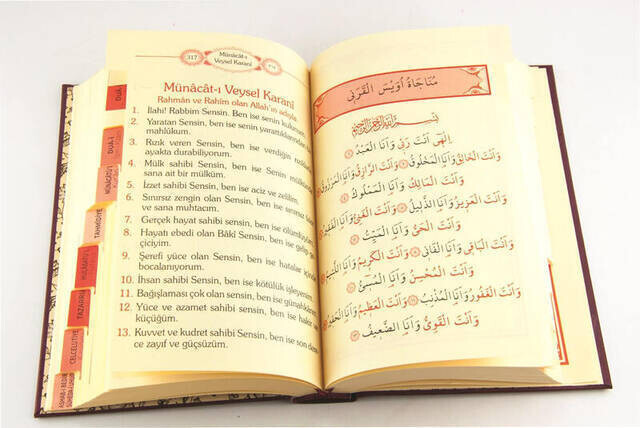 317
Münâcât-ı
Veysel Karanî
Münâcât-ı Veysel Karanî
Rahmân ve Rahîm olan Allah'ın adıyla.
1. İlahi! Rabbim Sensin. Ben ise senin kulunum.
2. Yaratan Sensin, ben ise senin yarattıklarından
mahlûkum.
3. Rızık veren Sensin, ben ise verdiğin rızıkla
ayakta durabiliyorum.
4. Mülk sahibi Sensin, ben ise Senin mülkün,
sana ait bir mülküm.
5. İzzet sahibi Sensin, ben ise aciz ve zelilim.
6. Sınırsız zengin olan Sensin, ben ise sınırsız
ve sana muhtacım.
7. Gerçek hayat sahibi sensin, ben ise ölümlüyüm.
8. Hayatı ebedi olan Bâkî Sensin, ben ise gelip
çiciyim.
9. Şerefi yüce olan Sensin, ben ise hatalar içinde
bocalanıyorum.
10. İhsan sahibi Sensin, ben ise kötülük işleyenim.
11. Bağışlaması çok olan sensin, ben ise
12. Yüce ve azamet sahibi Sensin, ben ise hakir
küçüğüm.
13. Kuvvet ve kudret sahibi Sensin, ben ise son
ce zayıf ve güçsüzüm.
DUÂ-İ
TAHMİDİYE
TAZARRU
CELCELUTİYE
مُنَاجَاةُ اُوَيْسَ الْقَرَنِى
بِسْمِ اللهِ الرَّحْمٰنِ الرَّحِيمِ
اِلٰهِى اَنْتَ رَبِّى وَاَنَا الْعَبْدُ
وَاَنْتَ الْخَالِقُ وَاَنَا الْمَخْلُوقُ وَاَنْتَ الرَّزَّاقُ وَاَنَا الْمَرْزُوقُ
وَاَنْتَ الْمَالِكُ وَاَنَا الْمَمْلُوكُ
وَاَنْتَ الْعَزِيزُ وَاَنَا الذَّلِيلُ وَاَنْتَ الْغَنِىُّ وَاَنَا
وَاَنْتَ الْحَىُّ وَاَنَا الْمَيِّتُ
وَاَنْتَ الْبَاقِى وَاَنَا الْفَانِى وَاَنْتَ الْكَرِيمُ وَاَنَا اللَّئِيمُ
وَاَنْتَ الْمُحْسِنُ وَاَنَا الْمُسِىءُ
وَاَنْتَ الْغَفُورُ وَاَنَا الْمُذْنِبُ وَاَنْتَ الْعَظِيمُ وَاَنَا الْحَقِيرُ
وَاَنْتَ الْقَوِىُّ وَاَنَا الضَّعِيفُ